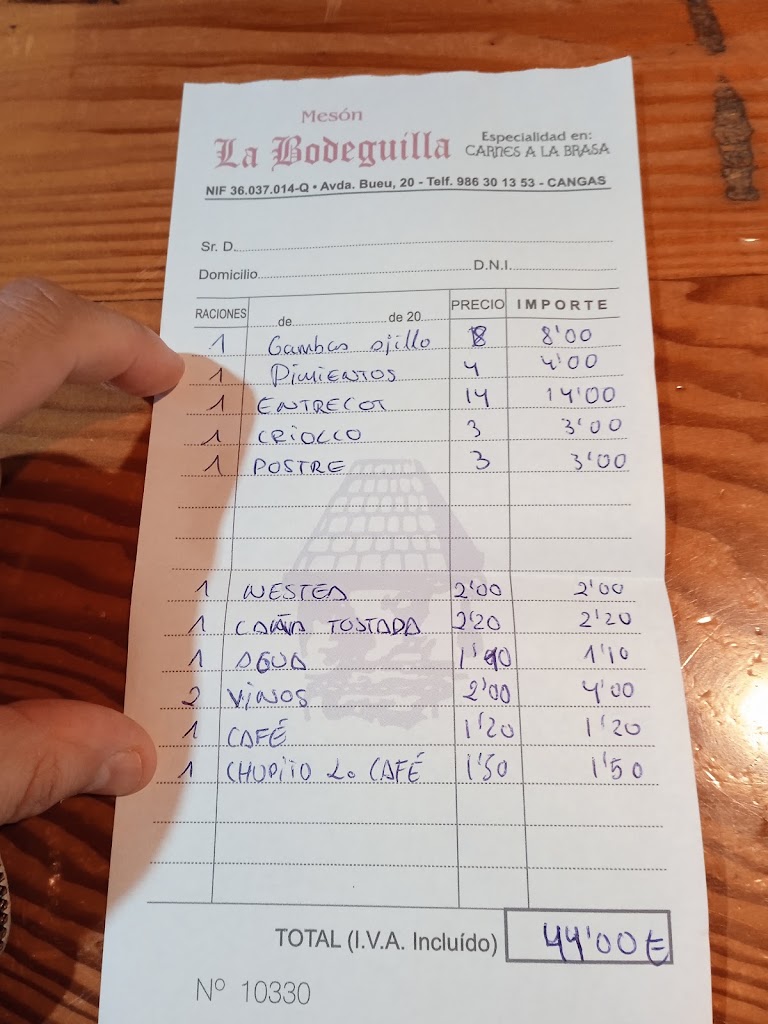 Mesón
La Bodeguilla
Especialidad en:
CARNES A LA BRASA
NIF 36.037.014-Q • Avda. Bueu, 20 - Telf. 986 30 13 53 - CANGAS
Sr. D.
Domicilio D.N.I.
RACIONES de de 20 PRECIO IMPORTE
1 Gambas ajillo 8 8'00
1 PIMIENTOS 4 4'00
1 ENTRECOT 14 14'00
1 CRIOLLO 3 3'00
1 POSTRE 3 3'00
1 NESTEA 2'00 2'00
1 CAÑA TOSTADA 2'20 2'20
1 AGUA 1'10 1'10
2 VINOS 2'00 4'00
1 CAFÉ 1'20 1'20
1 CHUPITO L. CAFÉ 1'50 1'50
TOTAL (I.V.A. Incluído) 44'00 €
Nº 10330